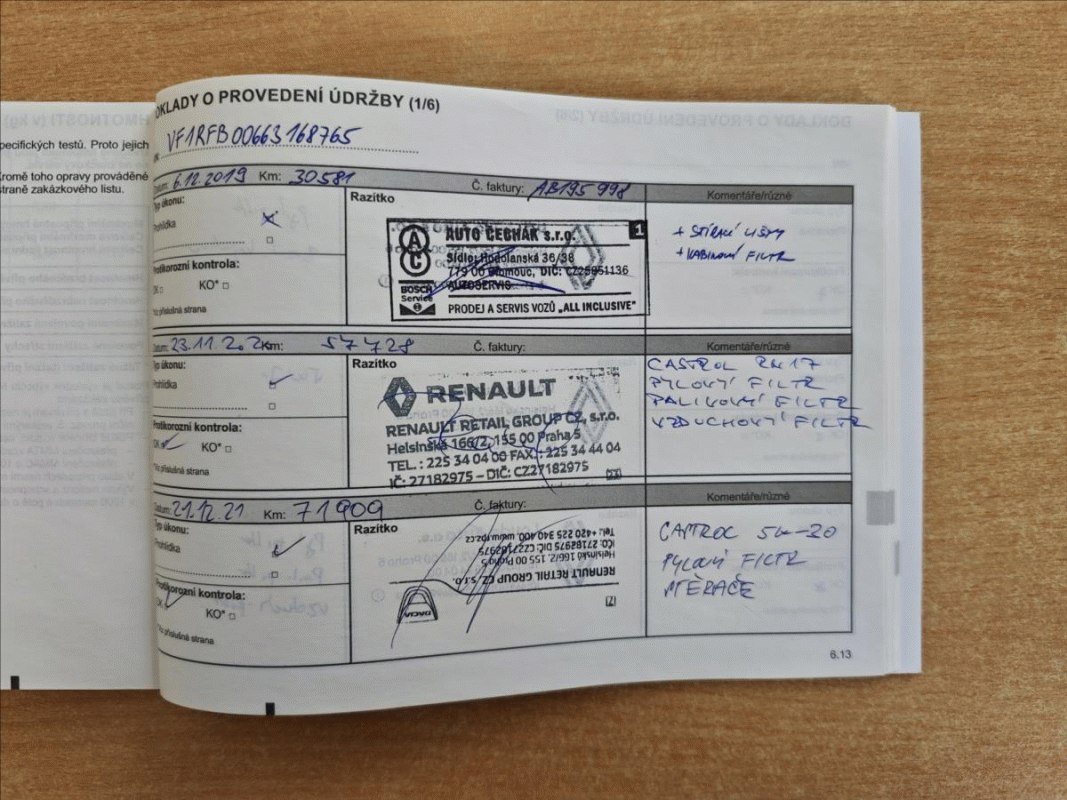 DOKLADY O PROVEDENÍ ÚDRŽBY (1/6)
VF1RFB00663168765
pecifických testů. Proto jejich
Kromě toho opravy prováděné
straně zakázkového listu.
Datum: 6.12.2019 Km: 30581 Č. faktury: AB195998 Komentáře/různé
Typ úkonu:
Razítko
Prohlídka
Protikorozní kontrola:
OK KO*
*Viz příslušná strana
1
AUTO ČECHÁK s.r.o.
Sídlo: Hodolanská 36/38
779 00 Olomouc, DIČ: CZ25851136
AUTOSERVIS
BOSCH
Service
PRODEJ A SERVIS VOZŮ „ALL INCLUSIVE"
+ STÍRACÍ LIŠTY
+ KABINOVÝ FILTR
Datum: 23.11.202 Km: 57728 Č. faktury: Komentáře/různé
Typ úkonu:
Razítko
Prohlídka
Protikorozní kontrola:
OK KO*
*Viz příslušná strana
RENAULT
RENAULT RETAIL GROUP CZ, s.r.o.
Helsinská 166/2, 155 00 Praha 5
TEL.: 225 34 04 00 FAX.: 225 34 44 04
IČ: 27182975 – DIČ: CZ27182975
23
CASTROL RN17
PYLOVÝ FILTR
PALIVOVÝ FILTR
VZDUCHOVÝ FILTR
Datum: 21.12.21 Km: 71909 Č. faktury: Komentáře/různé
Typ úkonu:
Razítko
Prohlídka
Protikorozní kontrola:
OK KO*
*Viz příslušná strana
RENAULT RETAIL GROUP CZ s.r.o.
Helsinská 166/2, 155 00 Praha 5
IČO: 27182975 DIČ CZ27182975
Tel.: +420 225 340 400, www.rpz.cz
DACIA
7
CASTROL 5W-30
PYLOVÝ FILTR
STĚRAČE
6.13